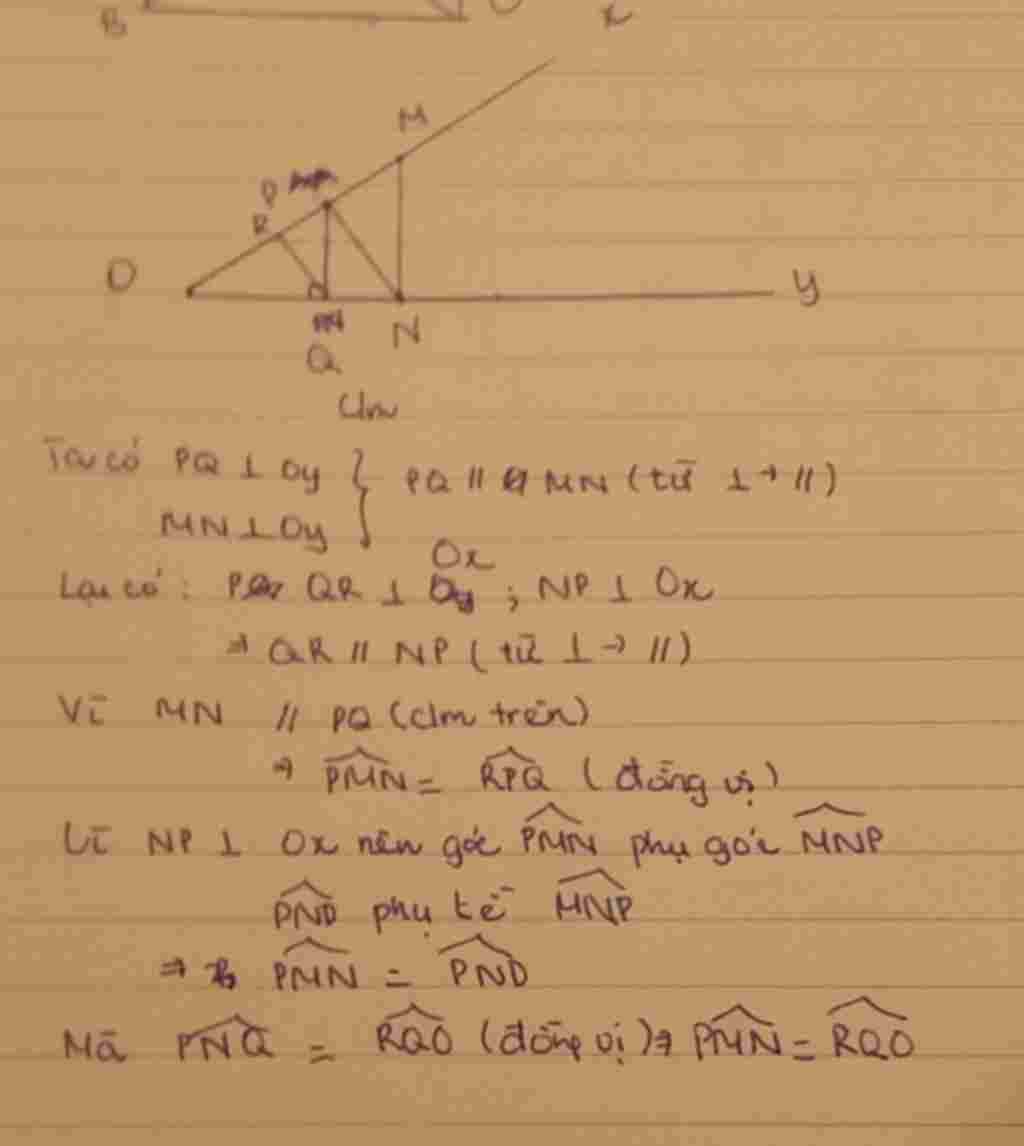 B C x
M
P
R
O y
Q N
Clm
Ta có PQ ⊥ Oy } PQ // MN (từ ⊥ → //)
MN ⊥ Oy
Ox
Lại có: QR ⊥ ; NP ⊥ Ox
⇒ QR // NP (từ ⊥ → //)
Vì MN // PQ (clm trên)
⇒ PMN = RPQ (đồng vị)
Vì NP ⊥ Ox nên góc PMN phụ góc MNP
PNO phụ MNP
⇒ PMN = PNO
Mà PNQ = RQO (đồng vị) ⇒ PMN = RQO